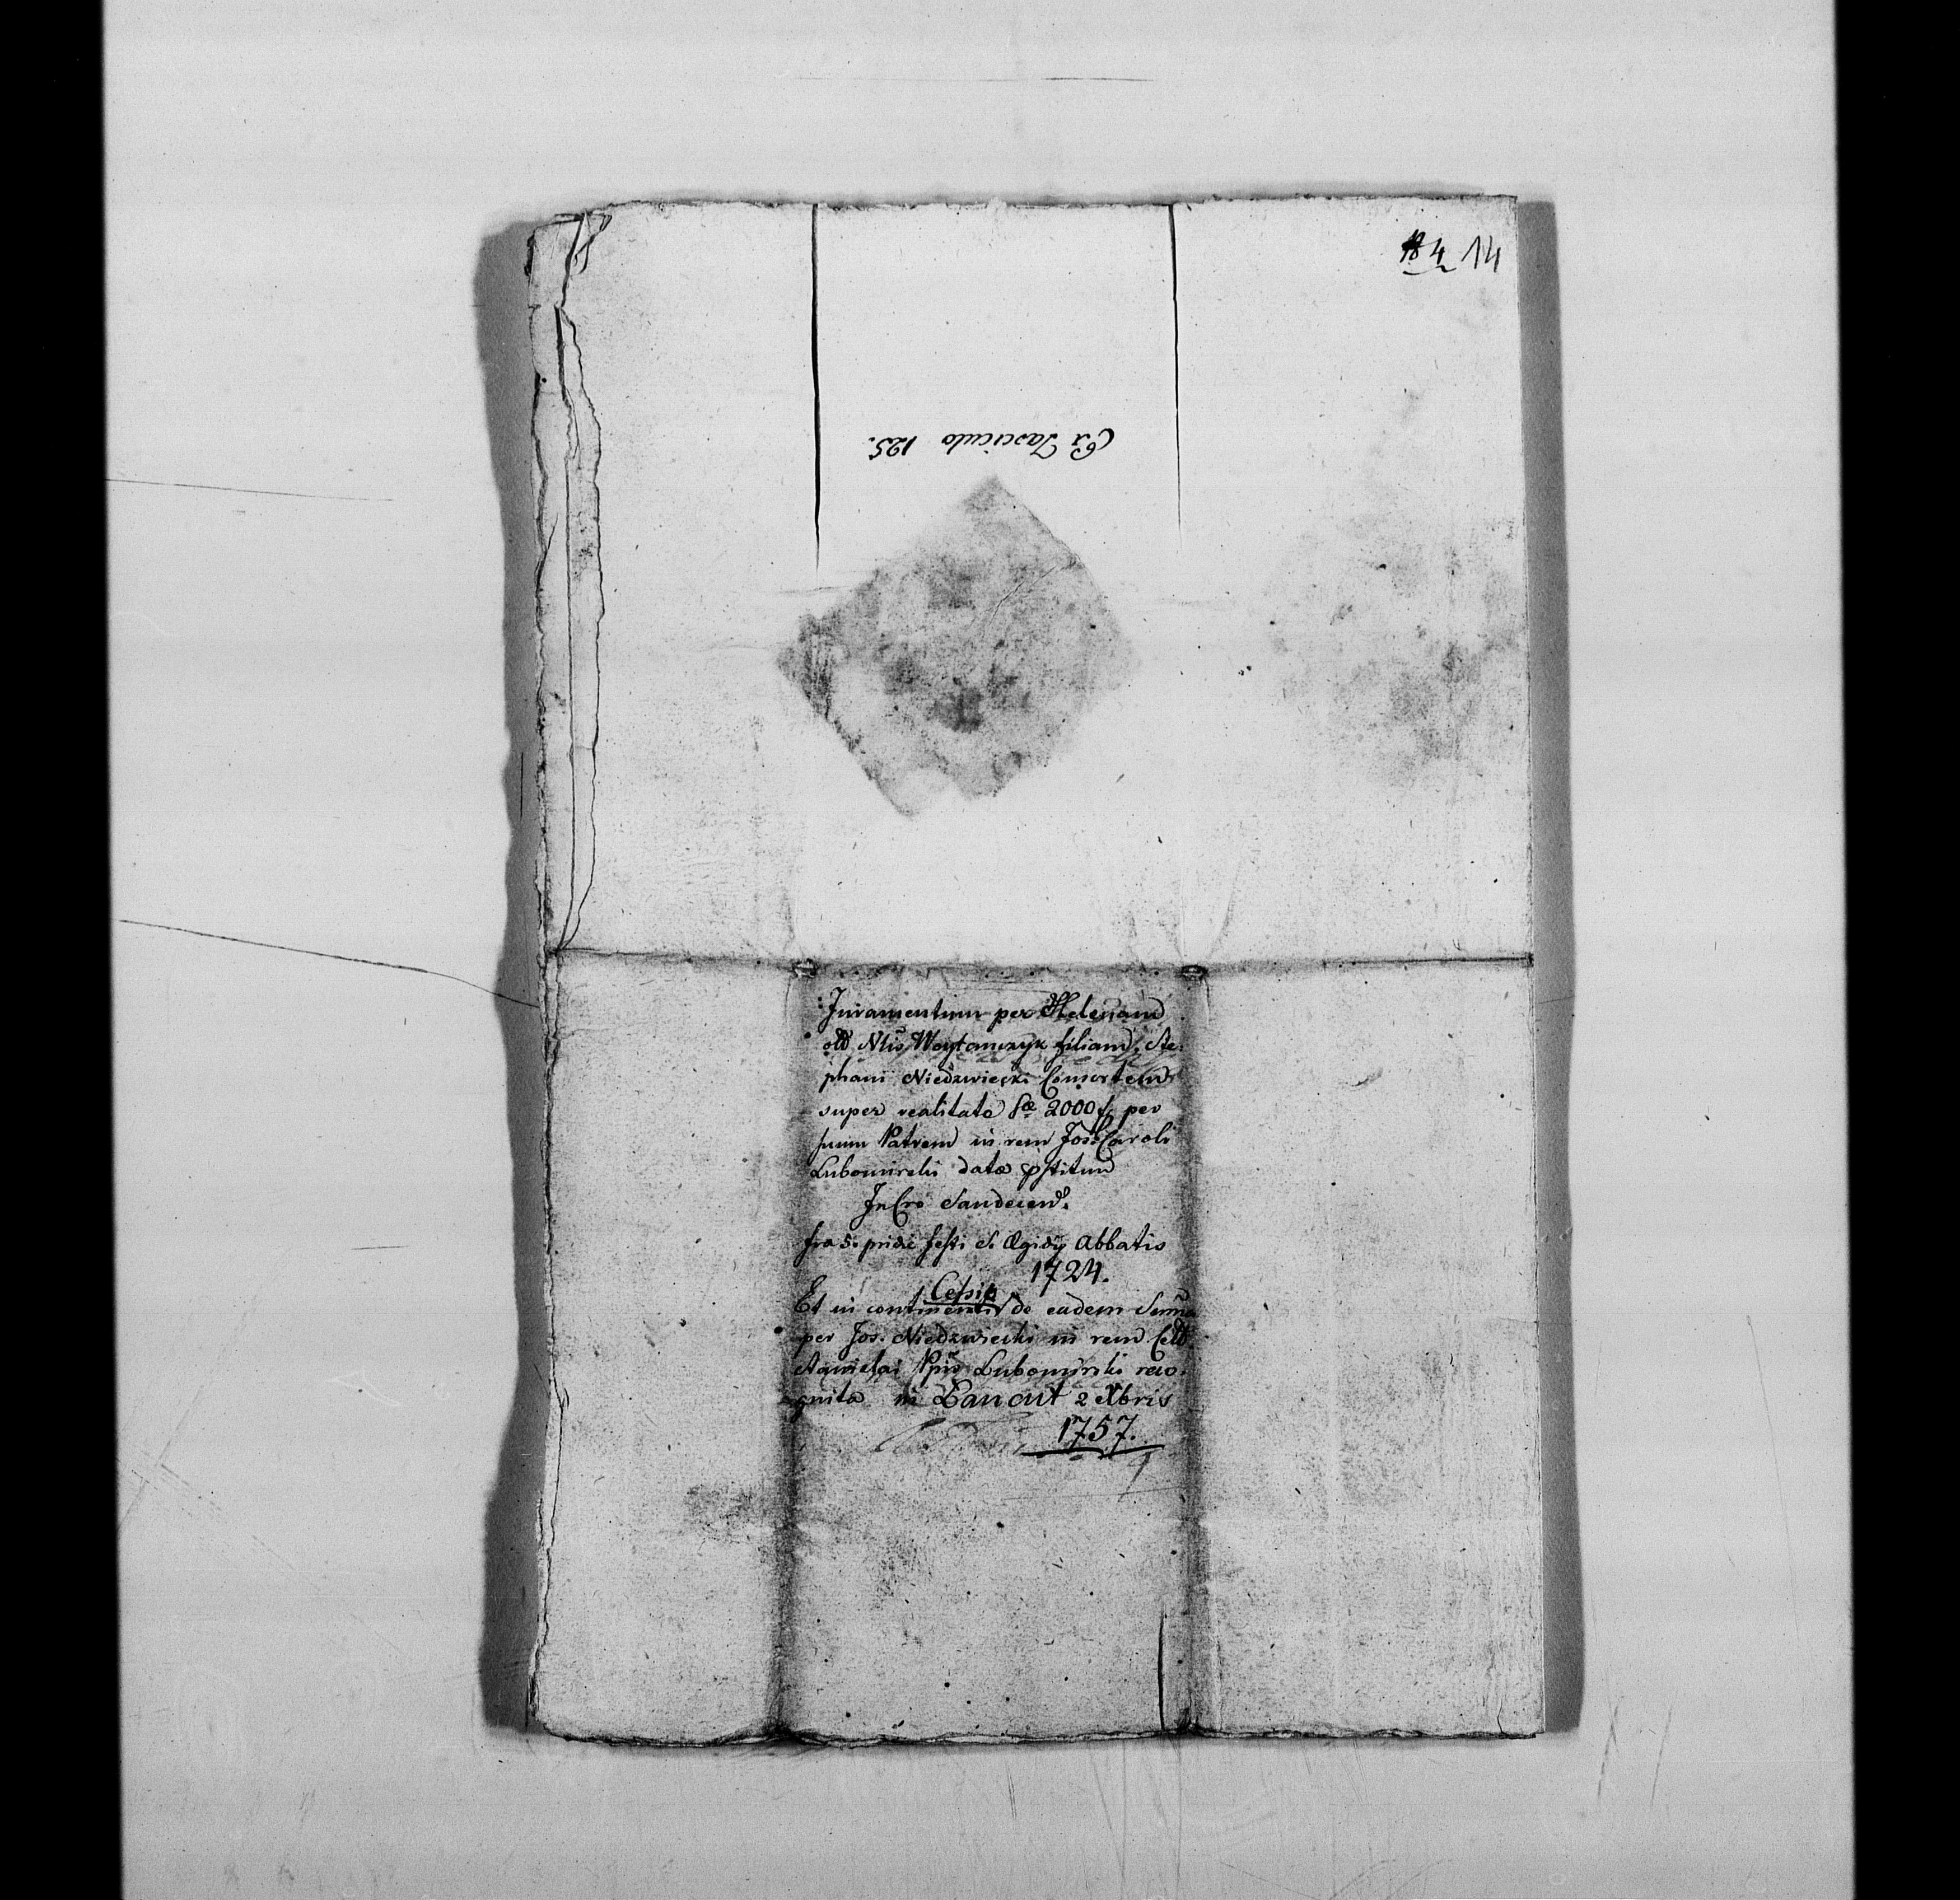 4 14
Ex Fasciculo 125.
Juramentum per Helenam
olb Nlis Woytanczyk filiam, Ste:
phani Niedzwiecki Consortem
super realitate Sæ 2000 f, per
suum Patrem in rem Jos: Caroli
Lubomirski datæ pstitum
In Cro Sandecen.
fra 5. pridie festi S. Ægidij Abbatis
1724.
Cessio
Et in continenti de eadem Suma
per Jos. Niedzwiecki in rem Cels
Stanislai Ppis Lubomirski reco:
gnita in Lancut 2 Xbris
1757.